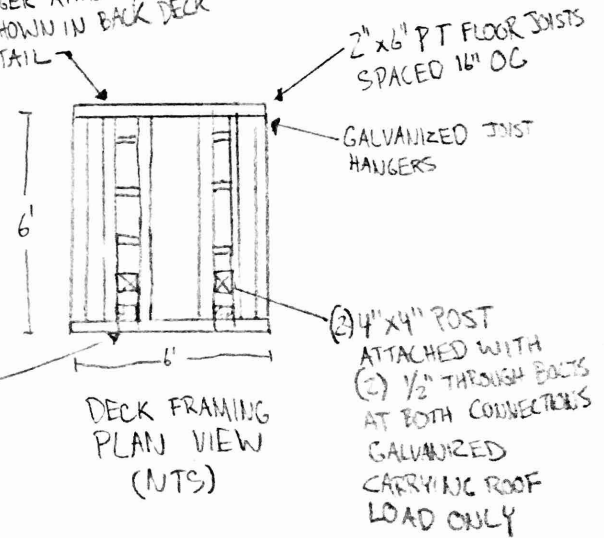 HOWN IN BACK DECK
TAIL
2"x6" PT FLOOR JOISTS
SPACED 16" OC
GALVANIZED JOIST
HANGERS
6'
6'
(2) 4"x4" POST
ATTACHED WITH
(2) 1/2" THROUGH BOLTS
AT BOTH CONNECTIONS
GALVANIZED
CARRYING ROOF
LOAD ONLY
DECK FRAMING
PLAN VIEW
(NTS)